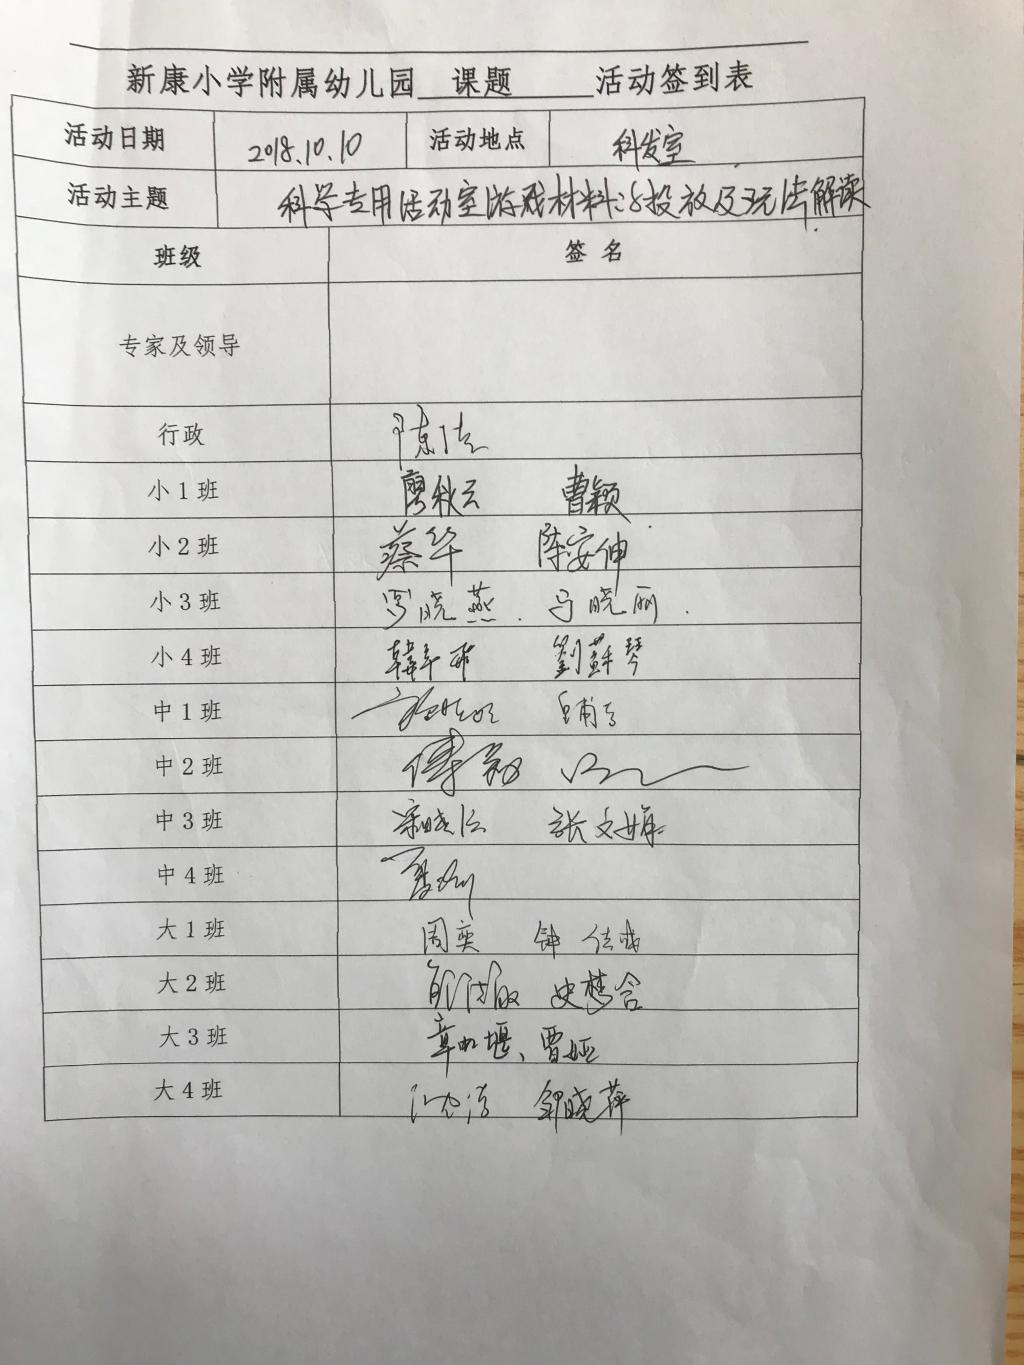 新康小学附属幼儿园 课题 活动签到表
活动日期 2018.10.10 活动地点 科发室
活动主题 科学专用活动室游戏材料的投放及玩法解读
班级 签名
专家及领导
行政
小1班 廖秋云 曹颖
小2班 蔡华 陈安伸
小3班 罗晓燕. 马晓丽.
小4班 劉蘇琴
中1班
中2班 傅毅
中3班 张文娟
中4班 夏
大1班 周奕 钟佳
大2班 史梦合
大3班 章 堰、曹娅
大4班 沈洁 邹晓萍